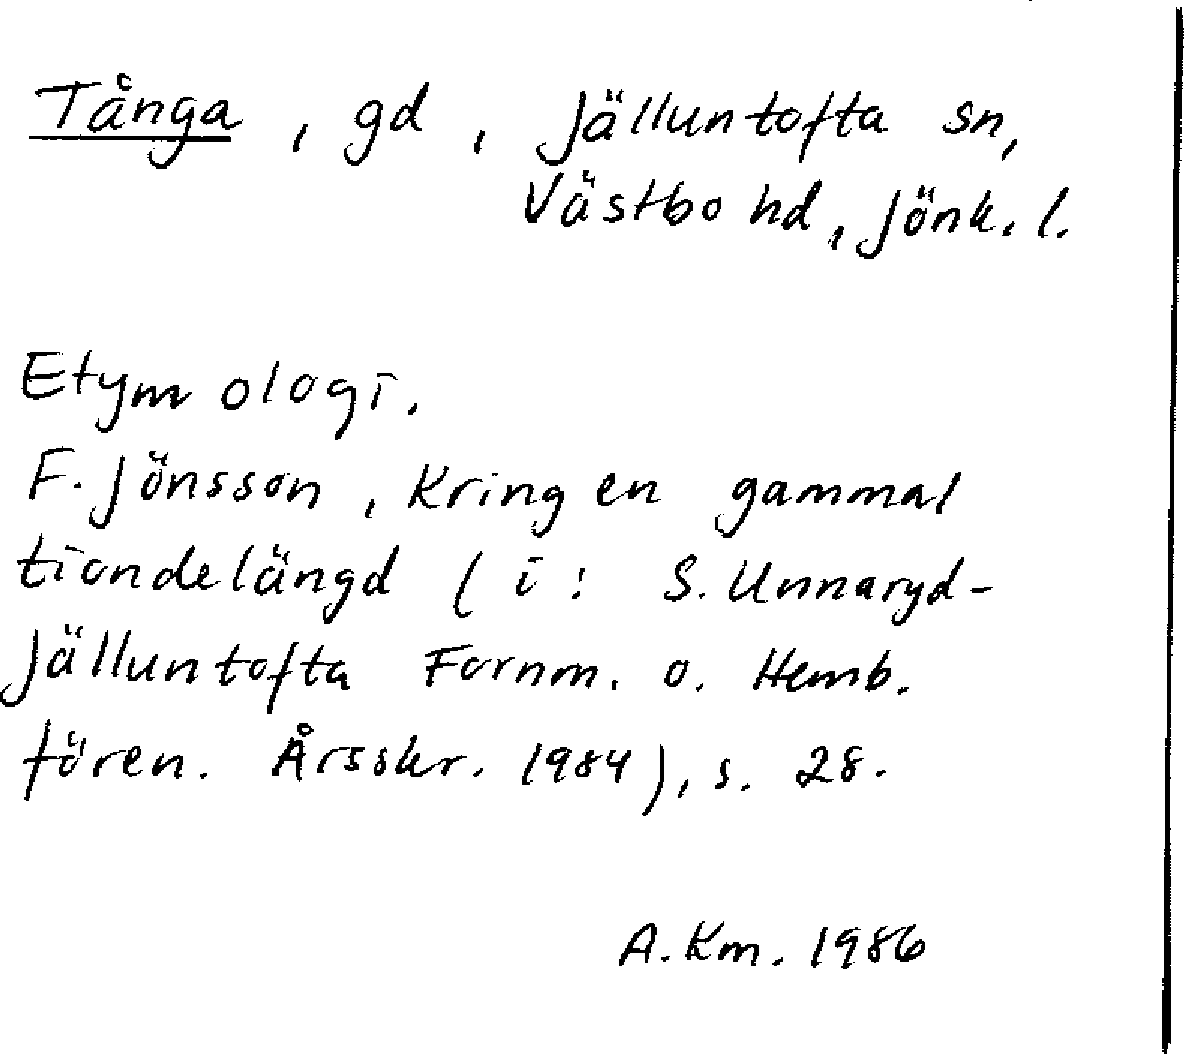 Tånga, gd, Jälluntofta sn,
Västbo hd, Jönk. l.
Etymologi.
F. Jönsson, Kring en gammal
tiondelängd (i: S. Unnaryd-
Jälluntofta Fornm. o. Hemb.
fören. Årsskr. 1984), s. 28.
A. Km. 1986